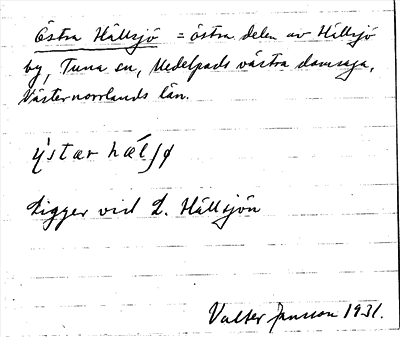 Östra Hällsjö = östra delen av Hällsjö
by, Tuna sn, Medelpads västra domsaga,
Västernorrlands län.
Ligger vid L. Hällsjön
Valter Jansson 1931.